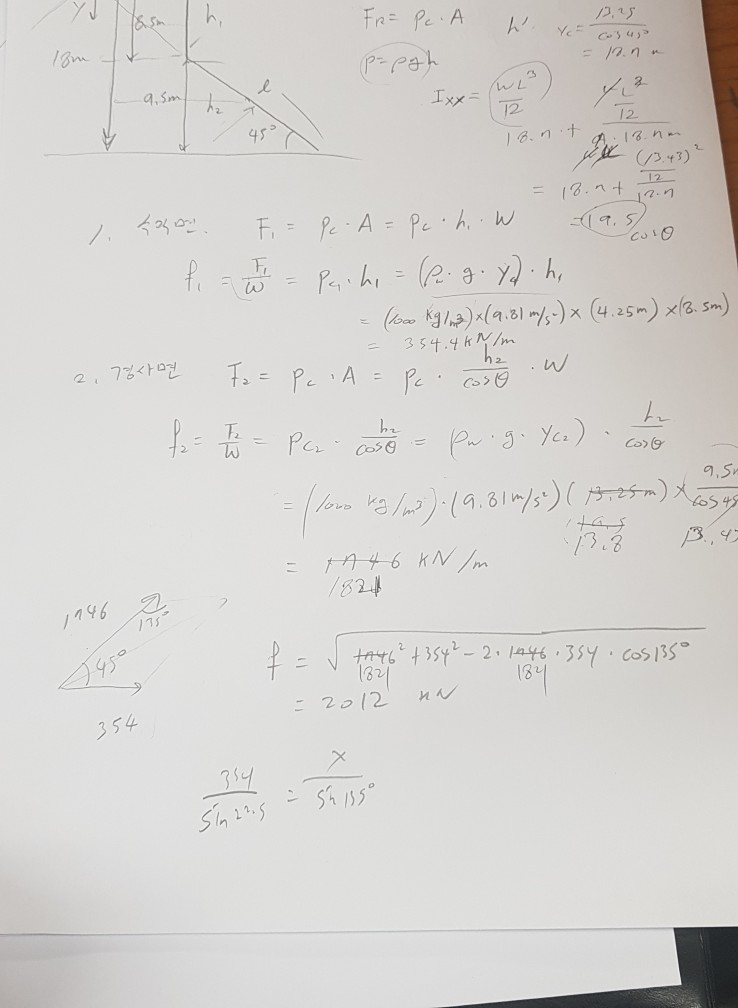 y 8.5m h₁
18m
9.5m h₂ l
45°
F_R = P_C · A
P = ρgh
h' y_C = 13.25 / cos45°
= 18.7 m
I_XX = WL³ / 12
= 19.5
cosθ
1. 수직면. F₁ = P_C · A = P_C · h₁ · W
f₁ = F₁/W = P_C₁ · h₁ = (ρ · g · y_C) · h₁
= (1000 kg/m³) × (9.81 m/s²) × (4.25m) × (8.5m)
= 354.4 kN/m
2. 경사면 F₂ = P_C · A = P_C · h₂/cosθ · W
f₂ = F₂/W = P_C₂ · h₂/cosθ = (ρ_w · g · y_C₂) · h₂/cosθ
= (1000 kg/m³) · (9.81 m/s²) (13.25m) × 9.5m/cos45
13.8
= 1746 kN/m
1821
1746 135°
45°
354
f = √(1746² + 354² - 2 · 1746 · 354 · cos135°)
1821 1821
= 2012 kN
354 / sin 22.5 = x / sin 135°